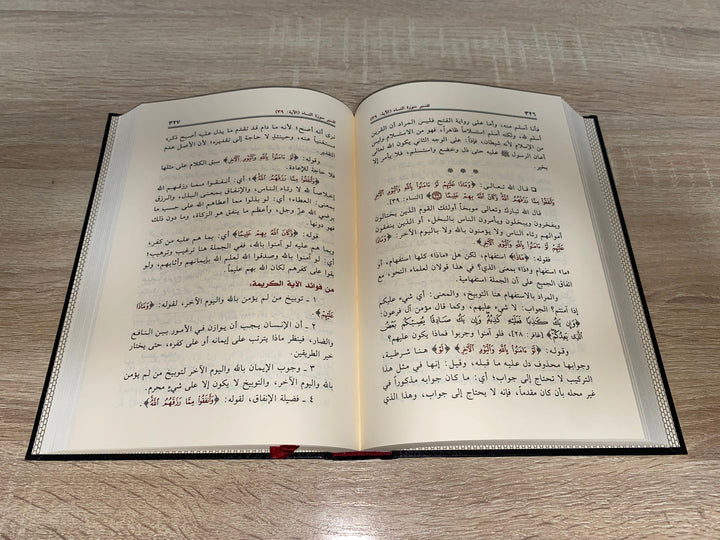 ٣٢٦
تفسير سورة النساء (الآية: ٣٩)
فأنا أسلم منه، وأما على رواية الفتح فليس المراد أن القرين
أسلم لله، ولكنه أسلم استسلاماً ظاهراً، فهو من الاستسلام وليس
من الإسلام لأنه شيطان، فإذاً: على الوجه الثاني يكون الله تعالى
أعان الرسول ﷺ عليه حتى ذل وخضع واستسلم، فلا يأمر إلا
بخير.
* * *
❑ قال الله تعالى: ﴿وَمَاذَا عَلَيْهِمْ لَوْ ءَامَنُوا بِاللَّهِ وَالْيَوْمِ الْآخِرِ
وَأَنفَقُوا مِمَّا رَزَقَهُمُ اللَّهُ وَكَانَ اللَّهُ بِهِمْ عَلِيمًا﴾ [النساء: ٣٩].
قال الله تبارك وتعالى موبخاً أولئك القوم الذين يختالون
ويفخرون ويبخلون ويأمرون الناس بالبخل، أو ينفقون
أموالهم رئاء الناس ولا يؤمنون بالله ولا باليوم الآخر: ﴿وَمَاذَا
عَلَيْهِمْ لَوْ ءَامَنُوا بِاللَّهِ وَالْيَوْمِ الْآخِرِ﴾.
فقوله: ﴿مَاذَا﴾ استفهام، ولكن هل «ماذا» كلها استفهام، أو
«ما» استفهام و«ذا» بمعنى الذي؟ في هذا قولان لعلماء النحو، مع
اتفاق الجميع على أن الجملة استفهامية.
والمراد بالاستفهام هنا التوبيخ، والمعنى: أي شيء عليكم
إذا آمنتم؟ الجواب: لا شيء، وكما قال مؤمن آل فرعون:
﴿وَإِن يَكُ كَاذِبًا فَعَلَيْهِ كَذِبُهُ وَإِن يَكُ صَادِقًا يُصِبْكُم بَعْضُ
الَّذِي يَعِدُكُمْ﴾ [غافر: ٢٨]، فلو آمنوا وجربوا فماذا يكون عليهم؟
وقوله: ﴿لَوْ ءَامَنُوا بِاللَّهِ وَالْيَوْمِ الْآخِرِ﴾ ﴿لَوْ﴾ هنا شرطية،
وجوابها محذوف دل عليه ما قبله، وقيل: إنها في مثل هذا
التركيب لا تحتاج إلى جواب؛ أي: ما كان جوابه مذكوراً في
غير محله بأن كان مقدماً، فإنه لا يحتاج إلى جواب، وهذا الذي
تفسير سورة النساء (الآية: ٣٩)
٣٢٧
نرى أنه أصح؛ لأنه ما دام قد تقدم ما يدل عليه أصبح ذكره
مستغنياً عنه، وحينئذٍ لا حاجة إلى تقديره؛ لأن الأصل عدم
التقدير.
وقوله: ﴿لَوْ ءَامَنُوا بِاللَّهِ وَالْيَوْمِ الْآخِرِ﴾ سبق الكلام على مثلها
فلا حاجة للإعادة.
﴿وَأَنفَقُوا مِمَّا رَزَقَهُمُ اللَّهُ﴾؛ أي: أنفقوا مما رزقهم الله
إخلاصاً لله لا رئاء الناس، والإنفاق بمعنى البذل، والرزق
بمعنى: العطاء؛ أي: لو بذلوا مما أعطاهم الله على حسب ما
يرضي الله عزّ وجل، وأعظم ما ينفق هو الزكاة، وما دون ذلك
فهو دونها.
قوله: ﴿وَكَانَ اللَّهُ بِهِمْ عَلِيمًا﴾ أي: بما هم عليه من كفر،
وبما هم عليه لو آمنوا بالله، ففي الجملة هنا ترغيب وترهيب؛
أي: لو آمنوا بالله وصدقوا الله لعلم الله بإيمانهم وأثابهم، ولو
بقوا على كفرهم لكان الله بهم عليماً.
من فوائد الآية الكريمة:
١ - توبيخ من لم يؤمن بالله واليوم الآخر، لقوله: ﴿وَمَاذَا
عَلَيْهِمْ﴾.
٢ - أن الإنسان يجب أن يوازن في الأمور بين النافع
والضار، فينظر ماذا يترتب على إيمانه أو على كفره، حتى يختار
خير الطريقين.
٣ - وجوب الإيمان بالله واليوم الآخر لتوبيخ من لم يؤمن
بالله واليوم الآخر، والتوبيخ لا يكون إلا على شيءٍ محرم.
٤ - فضيلة الإنفاق، لقوله: ﴿وَأَنفَقُوا مِمَّا رَزَقَهُمُ اللَّهُ﴾.